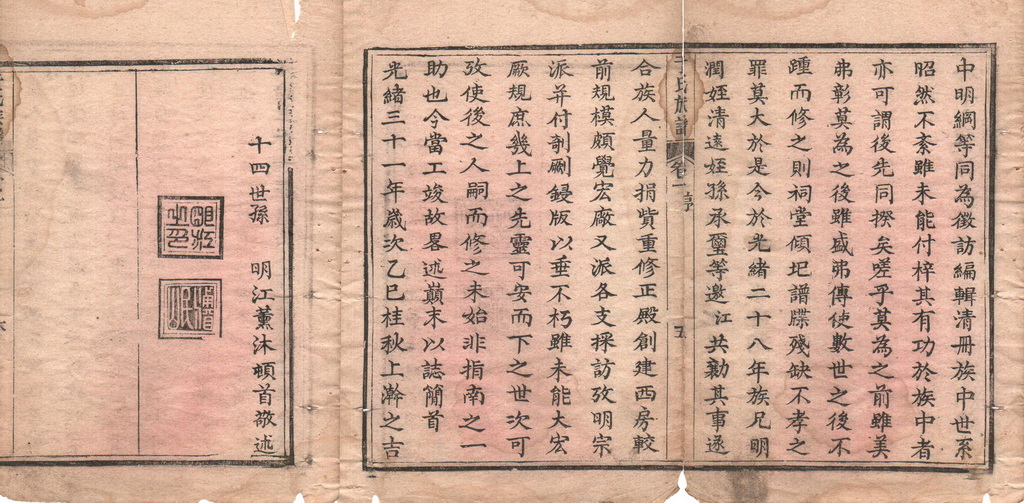 中明綱等同為徵訪編輯清冊族中世系
昭然不紊雖未能付梓其有功於族中者
亦可謂後先同揆矣嗟乎莫為之前雖美
弗彰莫為之後雖盛弗傳使數世之後不
踵而修之則祠堂傾圮譜牒殘缺不孝之
罪莫大於是今於光緒二十八年族兄明
潤姪清遠姪孫承璽等邀江共勷其事遂
氏族譜 卷一 序 五
合族人量力捐貲重修正殿創建西房較
前規模頗覺宏廠又派各支採訪攷明宗
派并付剞劂鋟版以垂不朽雖未能大宏
厥規庶幾上之先靈可安而下之世次可
攷使後之人嗣而修之未始非指南之一
助也今當工竣故畧述巔末以誌簡首
光緒三十一年歲次乙巳桂秋上澣之吉
十四世孫 明江薰沐頓首敬述
明江之印